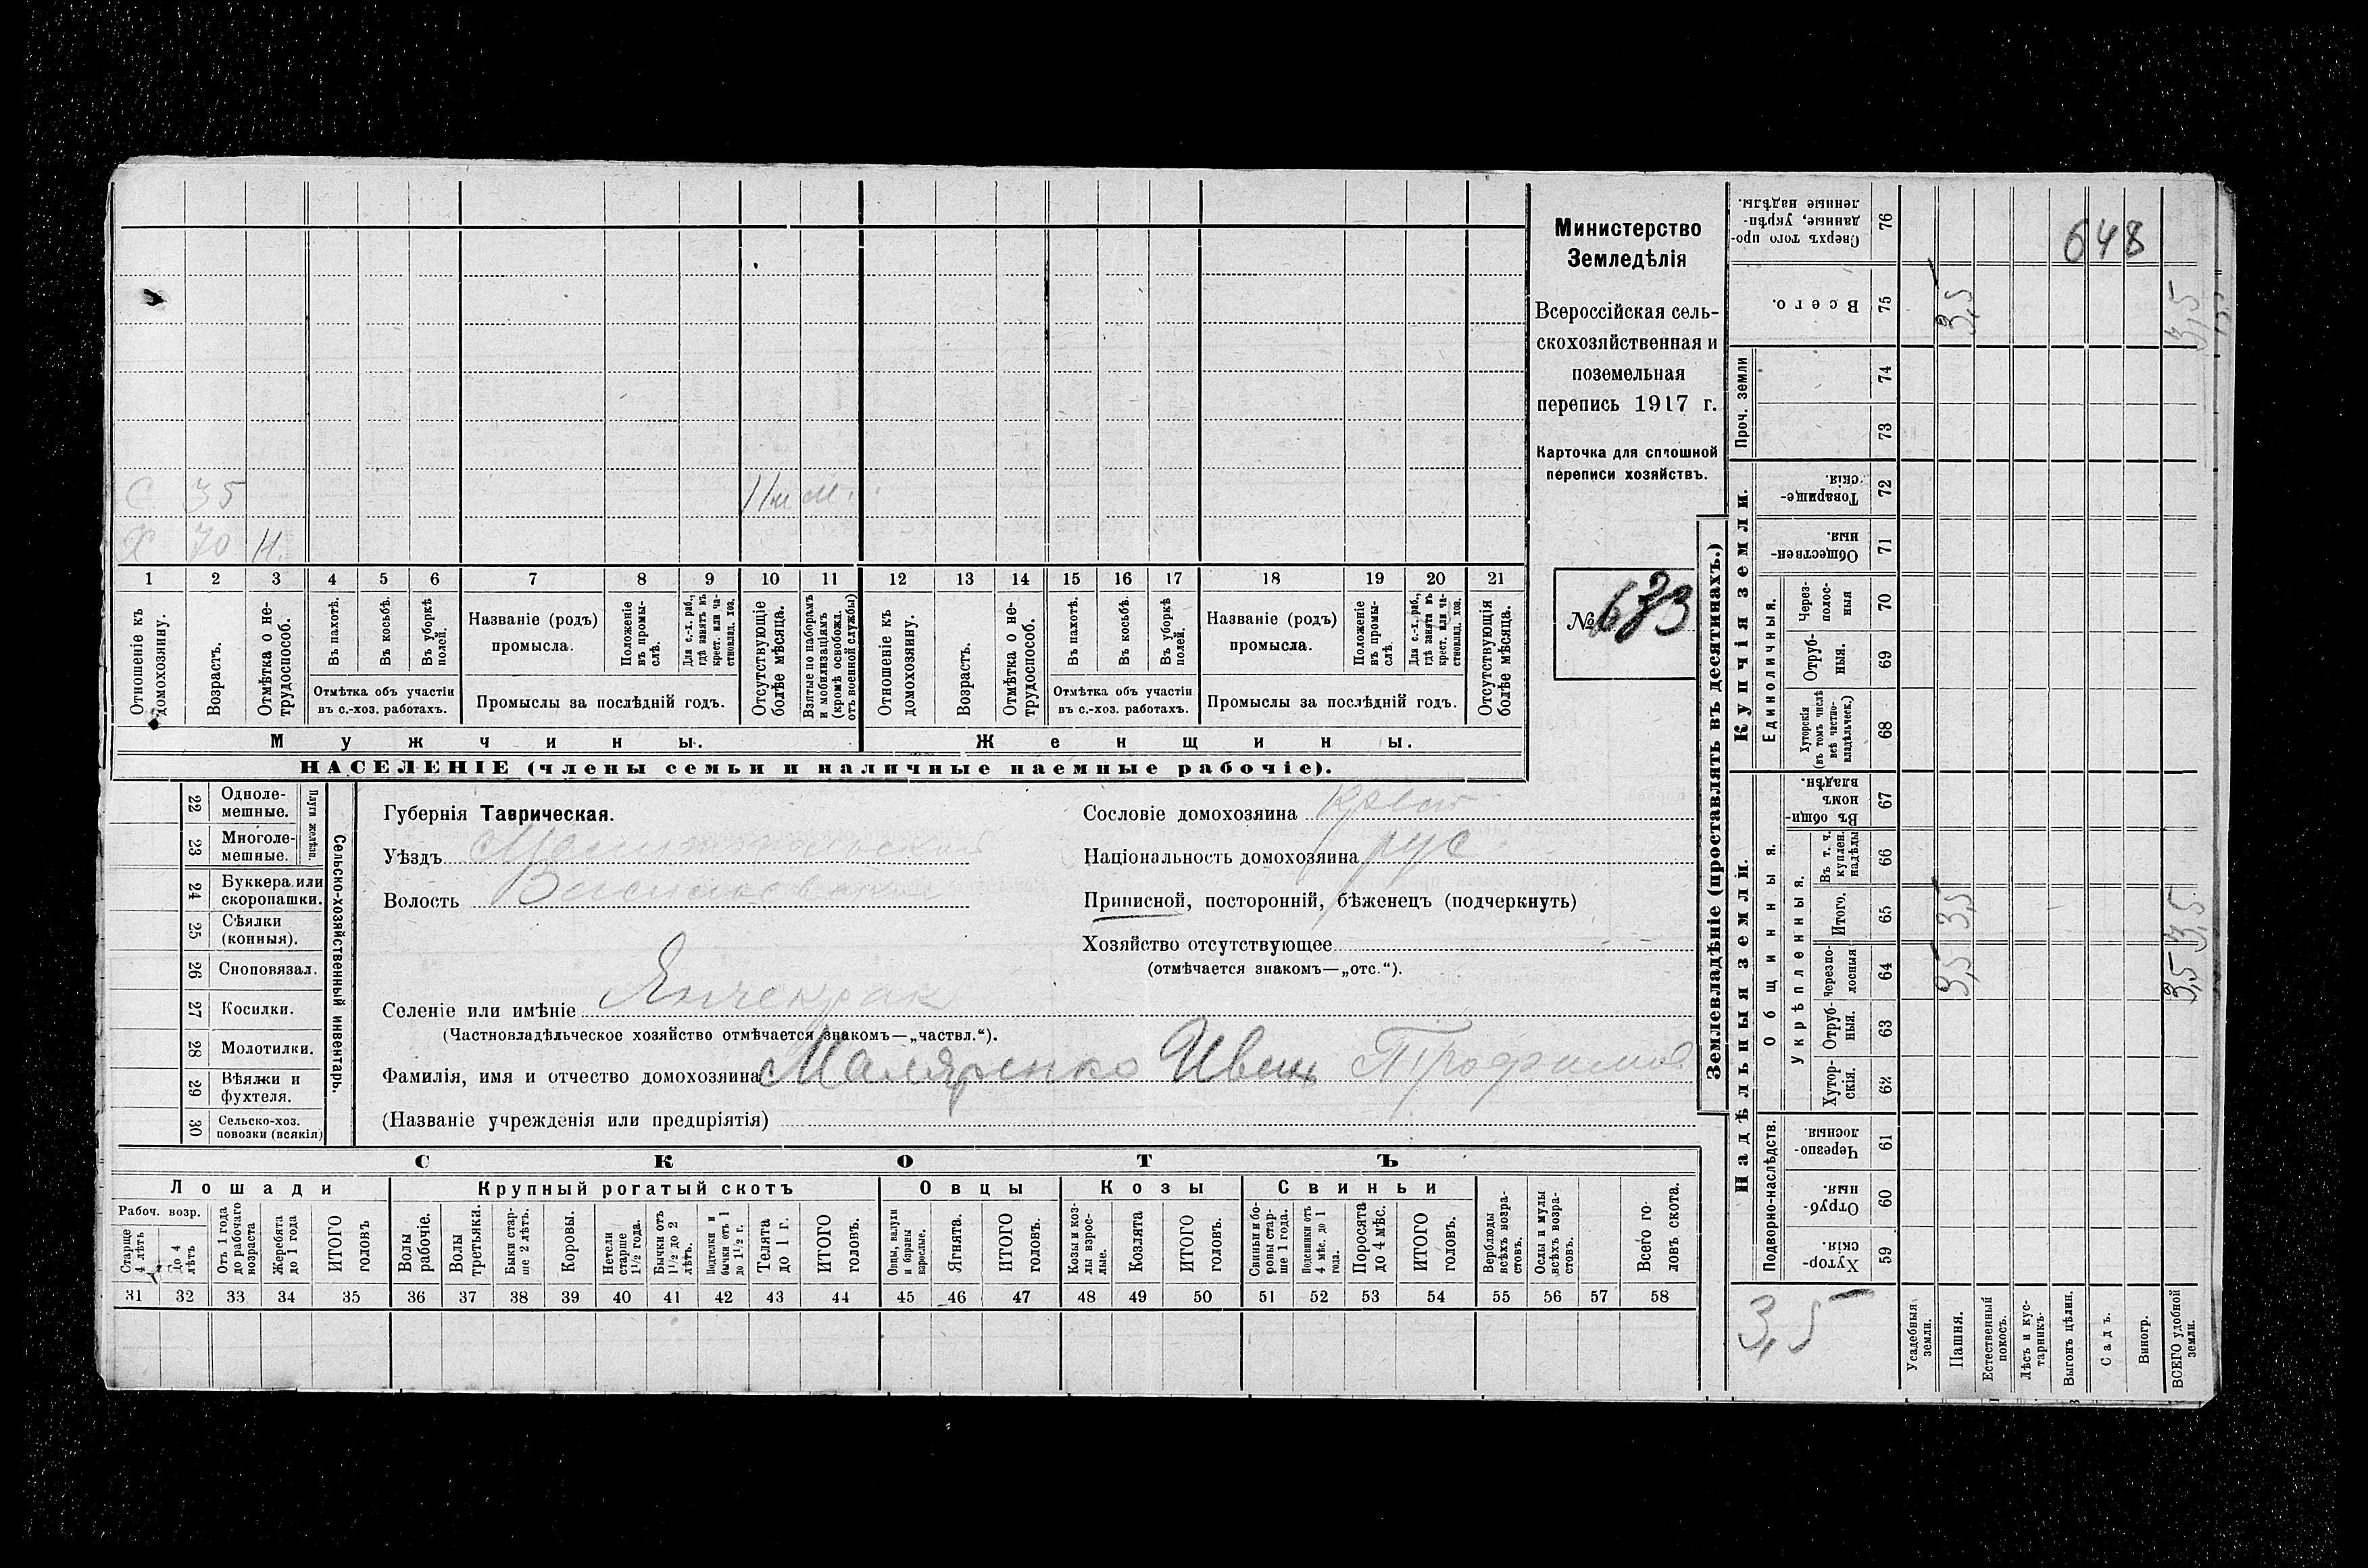 Министерство
Земледѣлія
Всероссійская сель-
скохозяйственная и
поземельная
перепись 1917 г.
Карточка для сплошной
переписи хозяйствъ.
№ 673
С 35
Х 70 Н.
1 2 3 4 5 6 7 8 9 10 11 12 13 14 15 16 17 18 19 20 21
Отношеніе къ домохозяину.
Возрастъ.
Отмѣтка о не-трудоспособ.
Въ пахотѣ.
Въ косьбѣ.
Въ уборкѣ полей.
Отмѣтка объ участіи въ с.-хоз. работахъ.
Названіе (родъ) промысла.
Положеніе въ промы-слѣ.
Для с.-х. раб., гдѣ занятъ въ крест. или ча-стновлад. хоз.
Промыслы за послѣдній годъ.
Отсутствующіе болѣе мѣсяца.
Взятые по наборамъ и мобилизаціямъ (кромѣ освобожд. отъ военной службы)
Отношеніе къ домохозяину.
Возрастъ.
Отмѣтка о не-трудоспособ.
Въ пахотѣ.
Въ косьбѣ.
Въ уборкѣ полей.
Отмѣтка объ участіи въ с.-хоз. работахъ.
Названіе (родъ) промысла.
Положеніе въ промы-слѣ.
Для с.-х. раб., гдѣ занята въ крест. или ча-стновлад. хоз.
Промыслы за послѣдній годъ.
Отсутствующія болѣе мѣсяца.
Мужчины. Женщины.
НАСЕЛЕНІЕ (члены семьи и наличные наемные рабочіе).
Сельско-хозяйственный инвентарь.
Плуги желѣзн.
22 Одноле-мешные.
23 Многоле-мешные.
24 Буккера или скоропашки.
25 Сѣялки (конныя).
26 Сноповязал.
27 Косилки.
28 Молотилки.
29 Вѣялки и фухтеля.
30 Сельско-хоз. повозки (всякія)
Губернія Таврическая.
Уѣздъ Мелитопольский
Волость Васильевская
Селеніе или имѣніе Янчекрак
(Частновладѣльческое хозяйство отмѣчается знакомъ—„частвл.“).
Фамилія, имя и отчество домохозяина Маляренко Иван Трофимов
(Названіе учрежденія или предпріятія)
Сословіе домохозяина Крест
Національность домохозяина рус
Приписной, посторонній, бѣженецъ (подчеркнуть)
Хозяйство отсутствующее
(отмѣчается знакомъ—„отс.“).
СКОТЪ
Лошади Крупный рогатый скотъ Овцы Козы Свиньи
Рабоч. возр.
Старше 4 лѣтъ
До 4 лѣтъ
Отъ 1 года до рабочаго возраста
Жеребята до 1 года
ИТОГО головъ
Волы рабочіе.
Волы третьяки.
Быки стар-ше 2 лѣтъ.
Коровы.
Нетели старше 1½ года.
Бычки отъ 1½ до 2 лѣтъ.
Подтелки и бычки отъ 1 до 1½ г.
Телята до 1 г.
ИТОГО головъ.
Овцы, валухи и бараны взрослые.
Ягнята.
ИТОГО головъ.
Козы и коз-лы взрос-лые.
Козлята
ИТОГО головъ.
Свиньи и бо-ровы стар-ше 1 года.
Подсвинки отъ 4 мѣс. до 1 года.
Поросята до 4 мѣс.
ИТОГО головъ.
Верблюды всѣхъ возра-стовъ.
Ослы и мулы всѣхъ возра-стовъ.
Всего го-ловъ скота.
31 32 33 34 35 36 37 38 39 40 41 42 43 44 45 46 47 48 49 50 51 52 53 54 55 56 57 58
Землевладѣніе (проставлять въ десятинахъ.)
648
76 Сверхъ того про-данные, укрѣп-ленные надѣлы.
75 Всего. 3,5 3,5
Проч. земли
74
73
Купчія земли.
72 Товарище-скія.
71 Обществен-ныя.
Единоличныя.
70 Через-полос-ныя
69 Отруб-ныя.
68 Хуторскія (въ томъ числѣ всѣ частно-владѣльческ.)
Надѣльныя земли.
Общинныя.
67 Въ общин-номъ владѣн.
Укрѣпленныя.
66 Въ т. ч. куплен. надѣлы
65 Итого. 3,5 3,5
64 Черезпо-лосныя 3,5 3,5
63 Отруб-ныя.
62 Хутор-скія.
Подворно-наслѣдств.
61 Черезпо-лосныя.
60 Отруб-ныя.
59 Хутор-скія.
3,5
Усадебныя земли.
Пашня.
Естественный покосъ.
Лѣсъ и кус-тарникъ.
Выгонъ цѣлин.
Садъ.
Виногр.
ВСЕГО удобной земли.